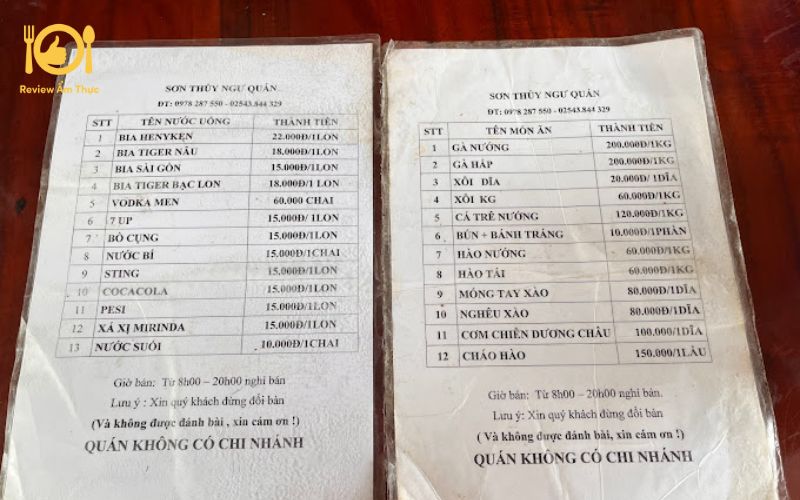 Review Ẩm Thực
SƠN THỦY NGƯ QUÁN
ĐT: 0978 287 550 - 02543.844 329
STT TÊN NƯỚC UỐNG THÀNH TIỀN
1 BIA HENYKEN 22.000Đ/1LON
2 BIA TIGER NÂU 18.000Đ/1LON
3 BIA SÀI GÒN 15.000Đ/1LON
4 BIA TIGER BẠC LON 18.000Đ/1 LON
5 VODKA MEN 60.000 CHAI
6 7 UP 15.000Đ/ 1LON
7 BÒ CỤNG 15.000Đ/ 1LON
8 NƯỚC BÍ 15.000Đ/1CHAI
9 STING 15.000Đ/1LON
10 COCACOLA 15.000Đ/1LON
11 PESI 15.000Đ/1LON
12 XÁ XỊ MIRINDA 15.000Đ/1LON
13 NƯỚC SUỐI 10.000Đ/1CHAI
Giờ bán: Từ 8h00 – 20h00 nghỉ bán
Lưu ý : Xin quý khách đừng đổi bàn
(Và không được đánh bài , xin cám ơn !)
QUÁN KHÔNG CÓ CHI NHÁNH
SƠN THỦY NGƯ QUÁN
ĐT: 0978 287 550 - 02543.844 329
STT TÊN MÓN ĂN THÀNH TIỀN
1 GÀ NƯỚNG 200.000Đ/1KG
2 GÀ HẤP 200.000Đ/1KG
3 XÔI DĨA 20.000Đ/ 1DĨA
4 XÔI KG 60.000Đ/1KG
5 CÁ TRÊ NƯỚNG 120.000Đ/1KG
6 BÚN + BÁNH TRÁNG 10.000Đ/1PHẦN
7 HÀO NƯỚNG 60.000Đ/1KG
8 HÀO TÁI 60.000Đ/1KG
9 MÓNG TAY XÀO 80.000Đ/1DĨA
10 NGHÊU XÀO 80.000Đ/1DĨA
11 CƠM CHIÊN DƯƠNG CHÂU 100.000/1DĨA
12 CHÁO HÀO 150.000/1LẨU
Giờ bán: Từ 8h00 – 20h00 nghỉ bán.
Lưu ý: Xin quý khách đừng đổi bàn
( Và không được đánh bài, xin cám ơn !)
QUÁN KHÔNG CÓ CHI NHÁNH